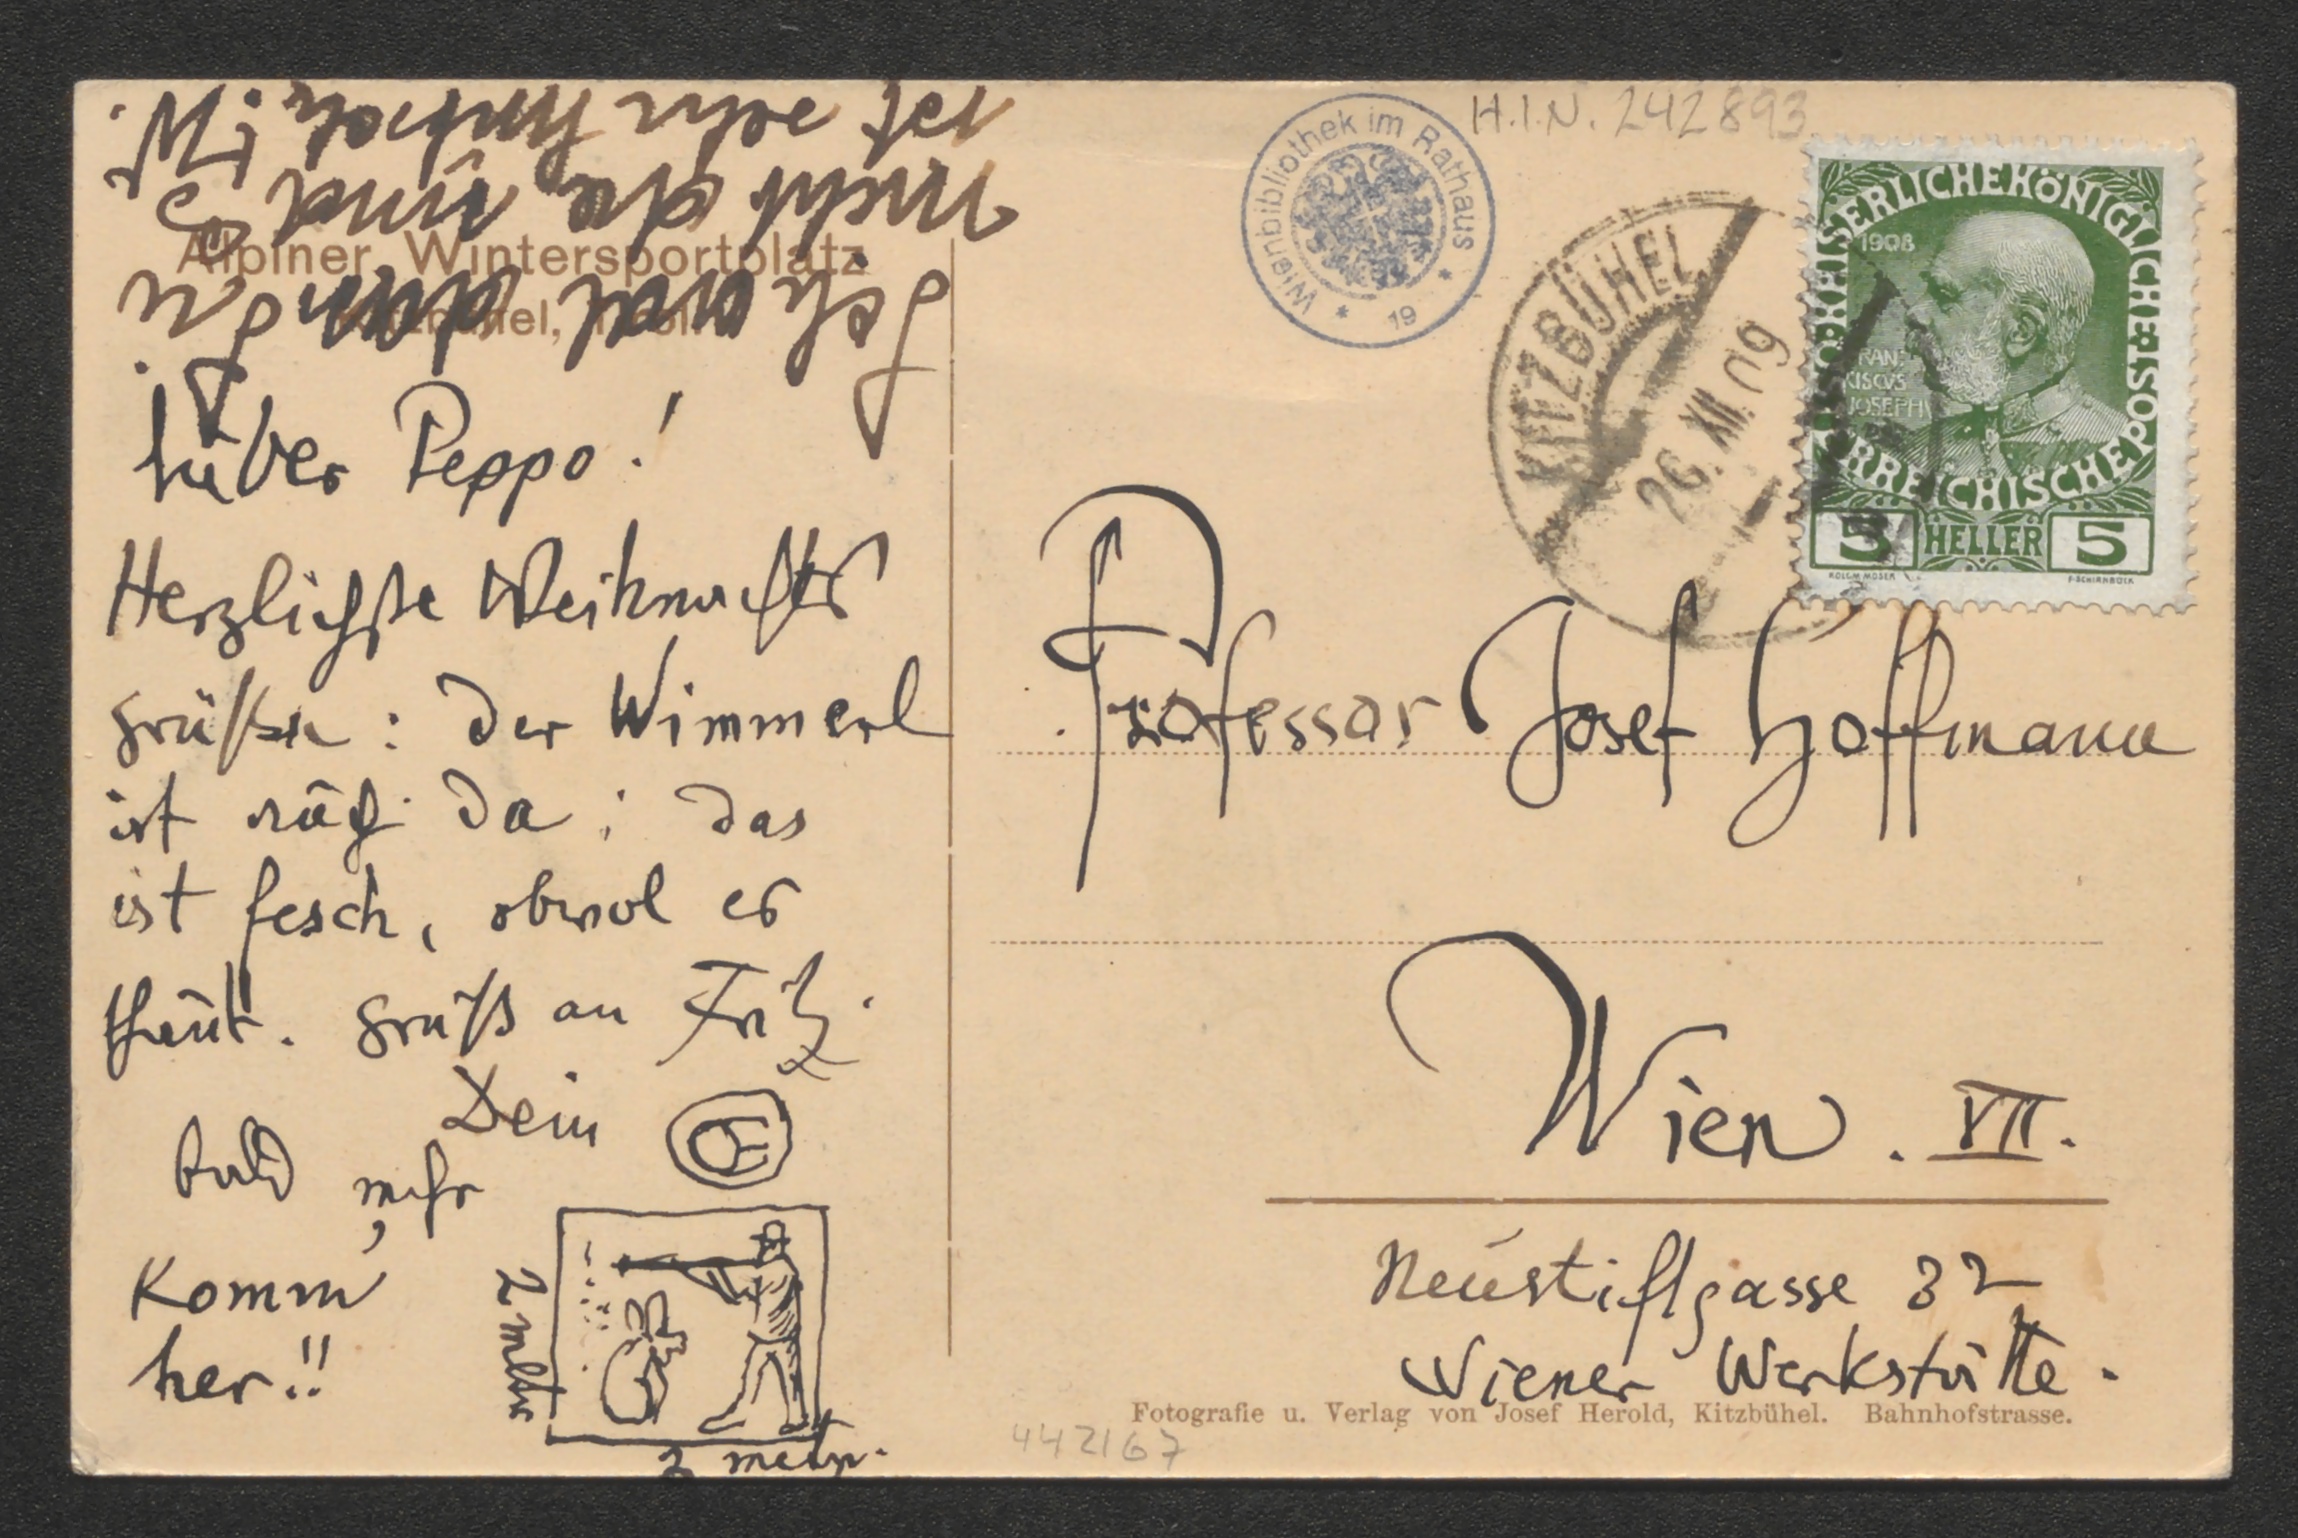 Alpiner Wintersportplatz
Kitzbühel, Tirol.
Lieber Peppo!
Herzlichste Weihnachts
grüße: der Wimmerl
ist auch da: das
ist fesch, obwol er
thaut. Gruß an Fritz.
Dein
bald mehr,
Komm
her!!
2 meter
meter.
Ich
nicht da und
H.I.N. 242893
Wienbibliothek im Rathaus
19
KITZBÜHEL
26.XII.09
KAISERLICHE KÖNIGLICHE ÖSTERREICHISCHE POST
1908
FRAN
CISCVS
JOSEPH I
5 HELLER 5
KOLOM. MOSER F. SCHIRNBÖCK
Professor Josef Hoffmann
Wien. VII.
Neustiftgasse 32
Wiener Werkstätte.
Fotografie u. Verlag von Josef Herold, Kitzbühel. Bahnhofstrasse.
442167